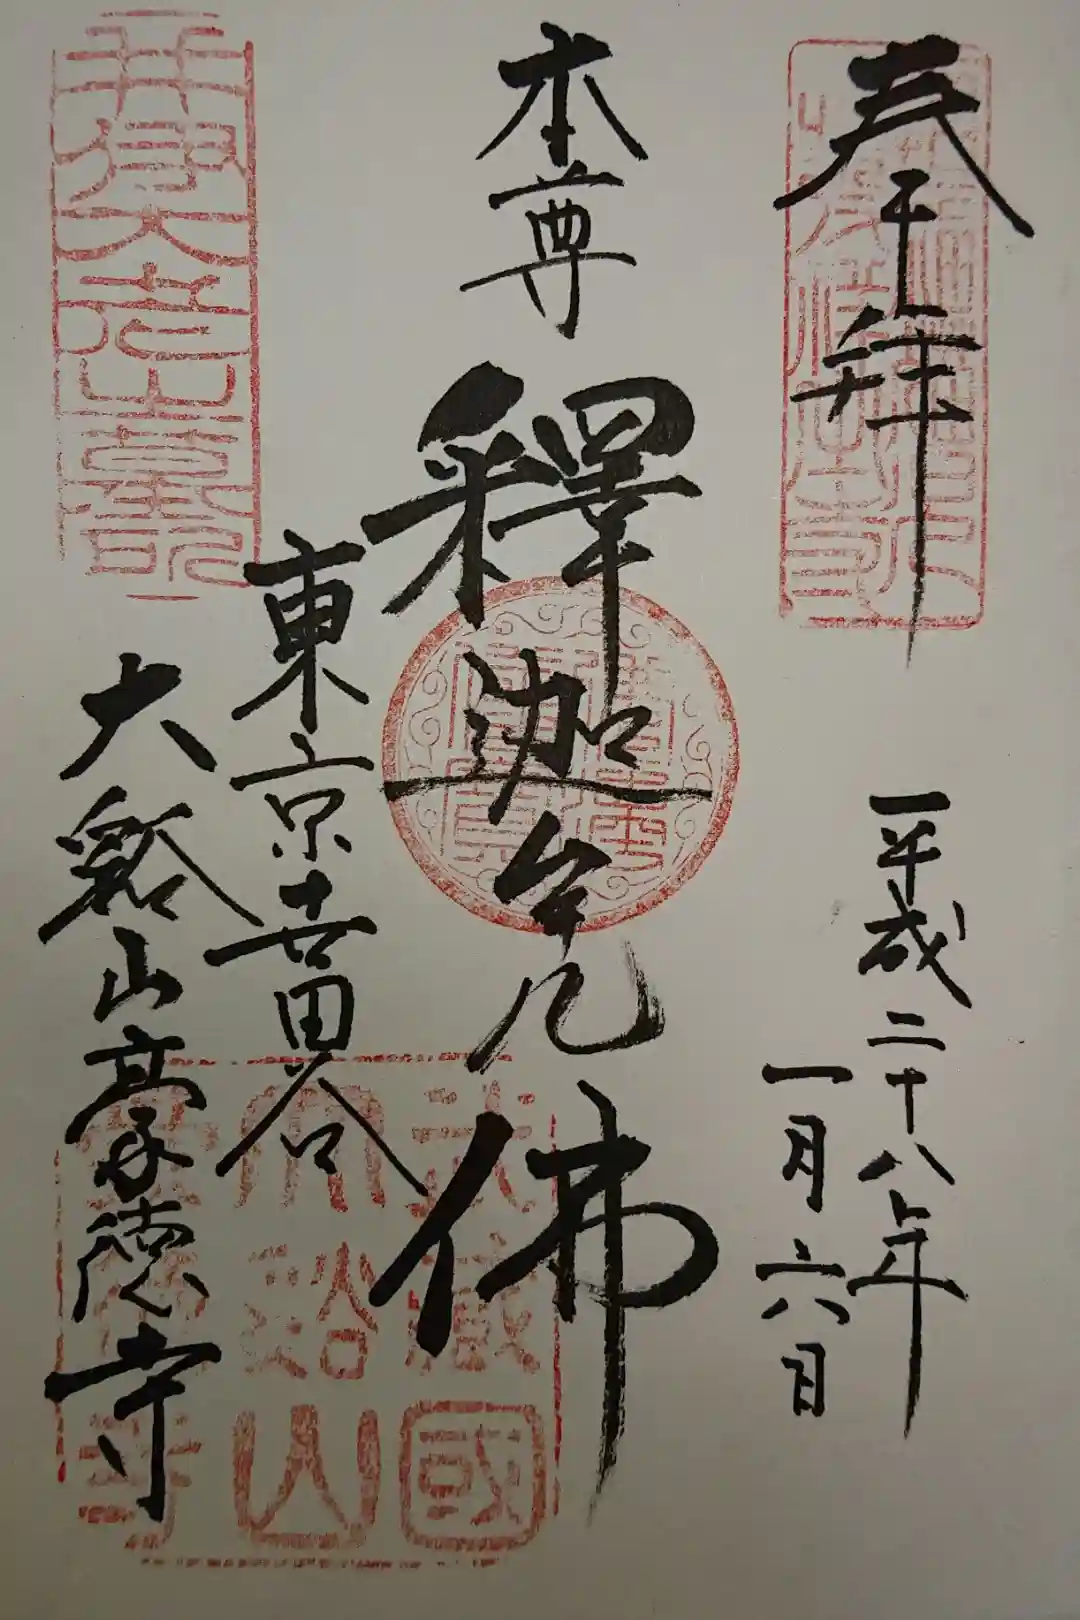 奉拝
平成二十八年
一月六日
本尊
釋迦牟尼佛
東京世田谷
大谿山豪徳寺
井伊大老墓所
武蔵國
大谿山
豪徳寺